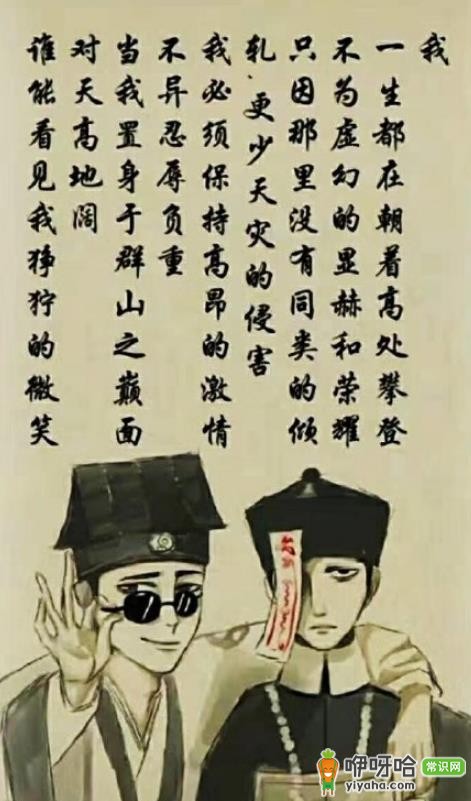 我
一生都在朝着高处攀登
不为虚幻的显赫和荣耀
只因那里没有同类的倾
轧.更少天灾的侵害
我必须保持高昂的激情
不异忍辱负重
当我置身于群山之巅面
对天高地阔
谁能看见我狰狞的微笑
咿呀哈 常识网
yiyaha.com